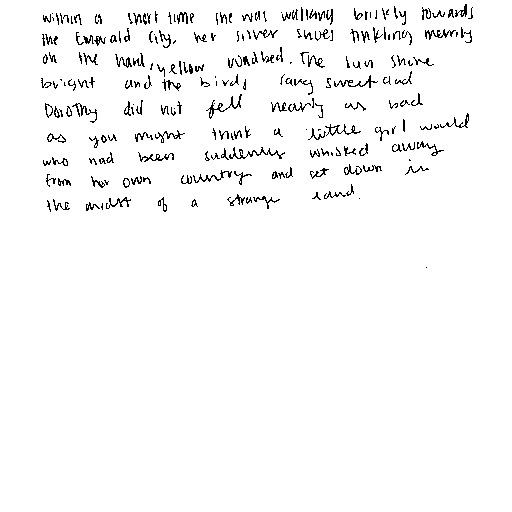 within a short time she was walking briskly towards
the Emerald City, her silver shoes tinkling merrily
on the hard, yellow roadbed. The sun shine
bright and the birds sang sweet and
Dorothy did not fell nearly as bad
as you might think a little girl would
who had been suddenly whisked away
from her own country and set down in
the midst of a strange land.